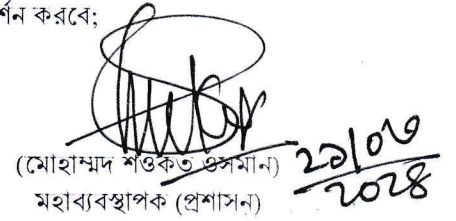 র্শন করবে;
(মোহাম্মদ শওকত ওসমান)
মহাব্যবস্থাপক (প্রশাসন)
২১/০৩
২০২৪